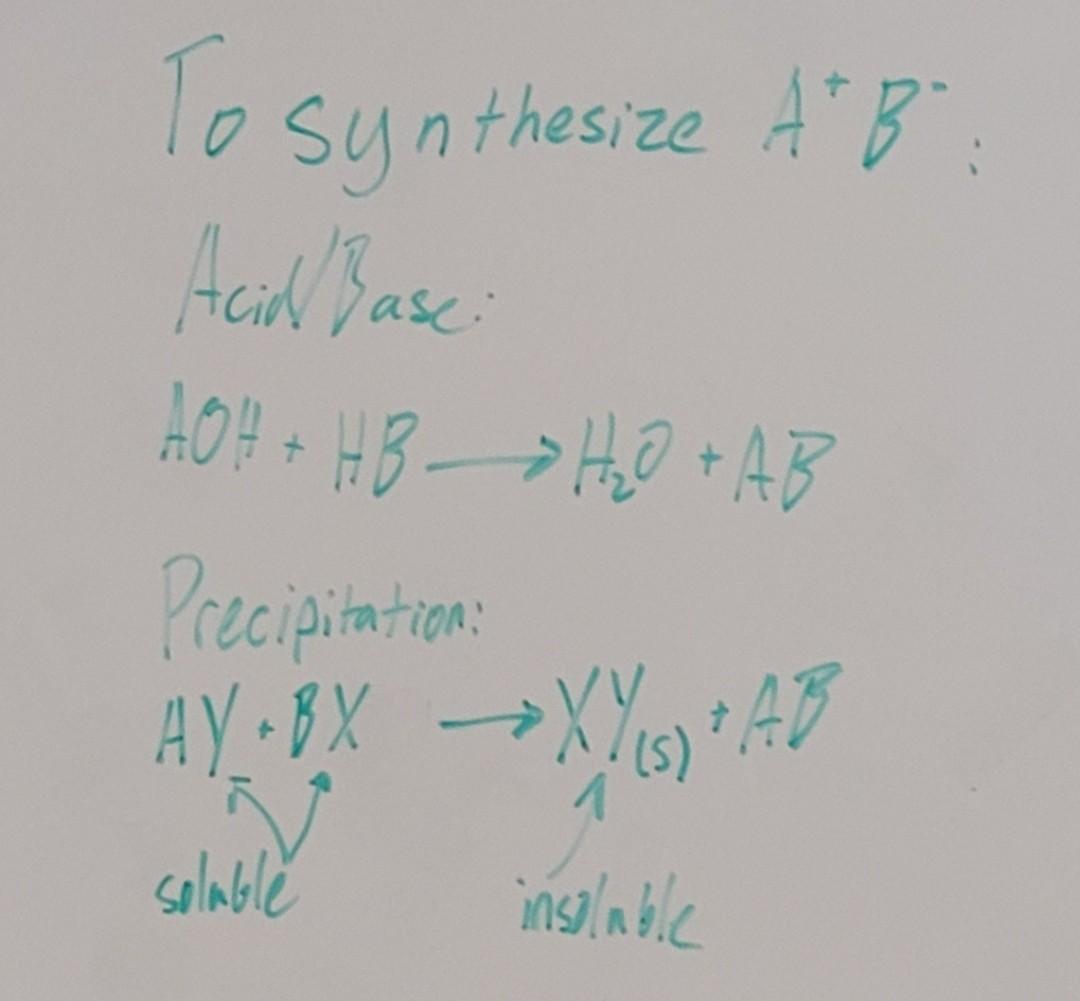 To synthesize A⁺ B⁻:
Acid/Base:
AOH + HB → H₂O + AB
Precipitation:
AY + BX → XY(s) + AB
soluble insoluble